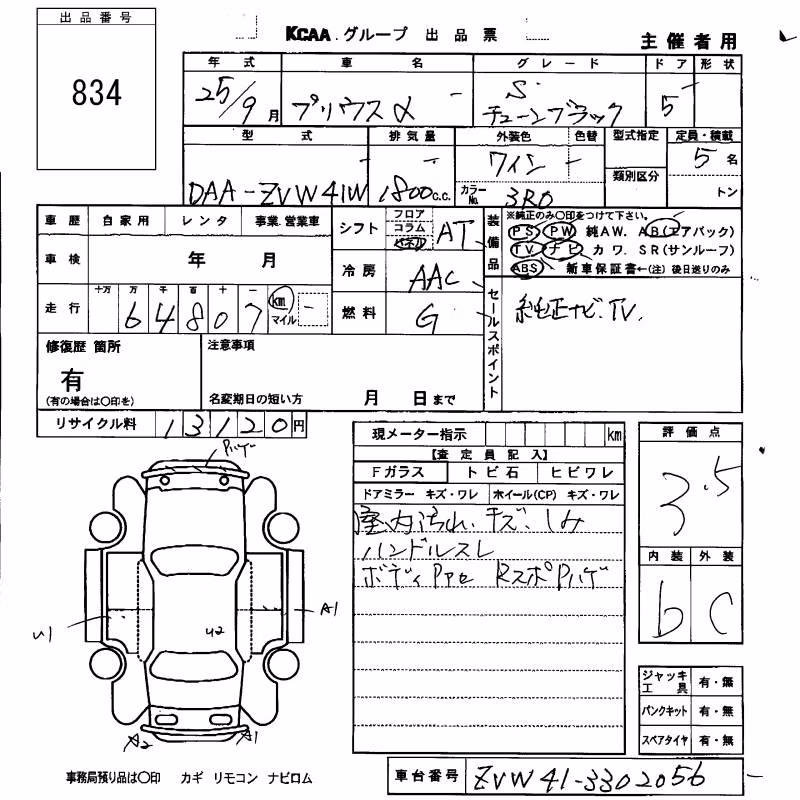 出品番号
834
KCAA グループ 出品票
主催者用
年式 車名 グレード ドア 形状
25/9月 プリウスα S チューンブラック 5
型式 排気量 外装色 色替 型式指定 定員・積載
DAA-ZVW41W 1800c.c. ワイン 5名
カラーNo. 3R0 類別区分 トン
車歴 自家用 レンタ 事業.営業車
車検 年 月
走行 十万 万 千 百 十 一
64807 km マイル
シフト フロア コラム パネル AT
冷房 AAC
燃料 G
装備品
※純正のみ〇印をつけて下さい。
PS PW 純AW. AB(エアバック)
TV ナビ カワ. SR(サンルーフ)
ABS 新車保証書←(注) 後日送りのみ
セールスポイント
純正ナビ.TV.
修復歴 箇所
有
(有の場合は〇印を)
注意事項
名変期日の短い方 月 日まで
リサイクル料 13120円
現メーター指示 km
【査定員記入】
Fガラス トビ石 ヒビワレ
ドアミラー キズ・ワレ ホイール(CP) キズ・ワレ
室内汚れ.キズ.しみ
ハンドルスレ
ボディPPe RスポPハゲ
評価点
3.5
内装 外装
b C
ジャッキ工具 有・無
パンクキット 有・無
スペアタイヤ 有・無
Pハゲ
A1
U1
U2
A2
A1
事務局預り品は〇印 カギ リモコン ナビロム
車台番号 ZVW41-3302056